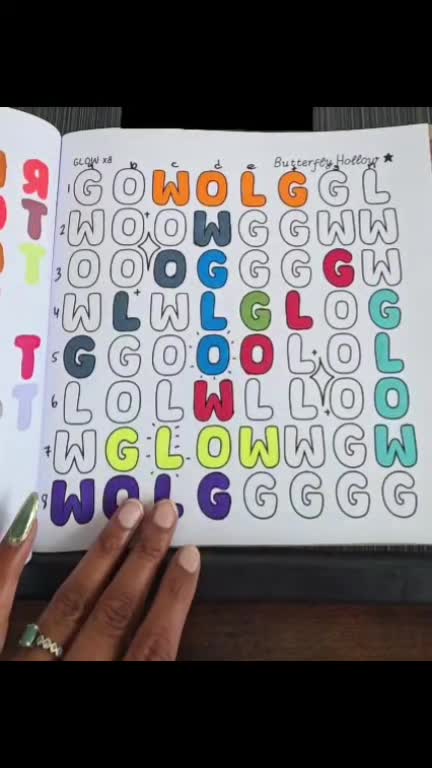 GLOW x8 Butterfly Hollow ★
a b c d e f g h
1 G O W O L G G L
2 W O O W G G W W
3 O O O G G G G W
4 W L W L G L O G
5 G G O O O L O L
6 L O L W L L O O
7 W G L O W W G W
8 W O L G G G G G
R
T
T
T
T